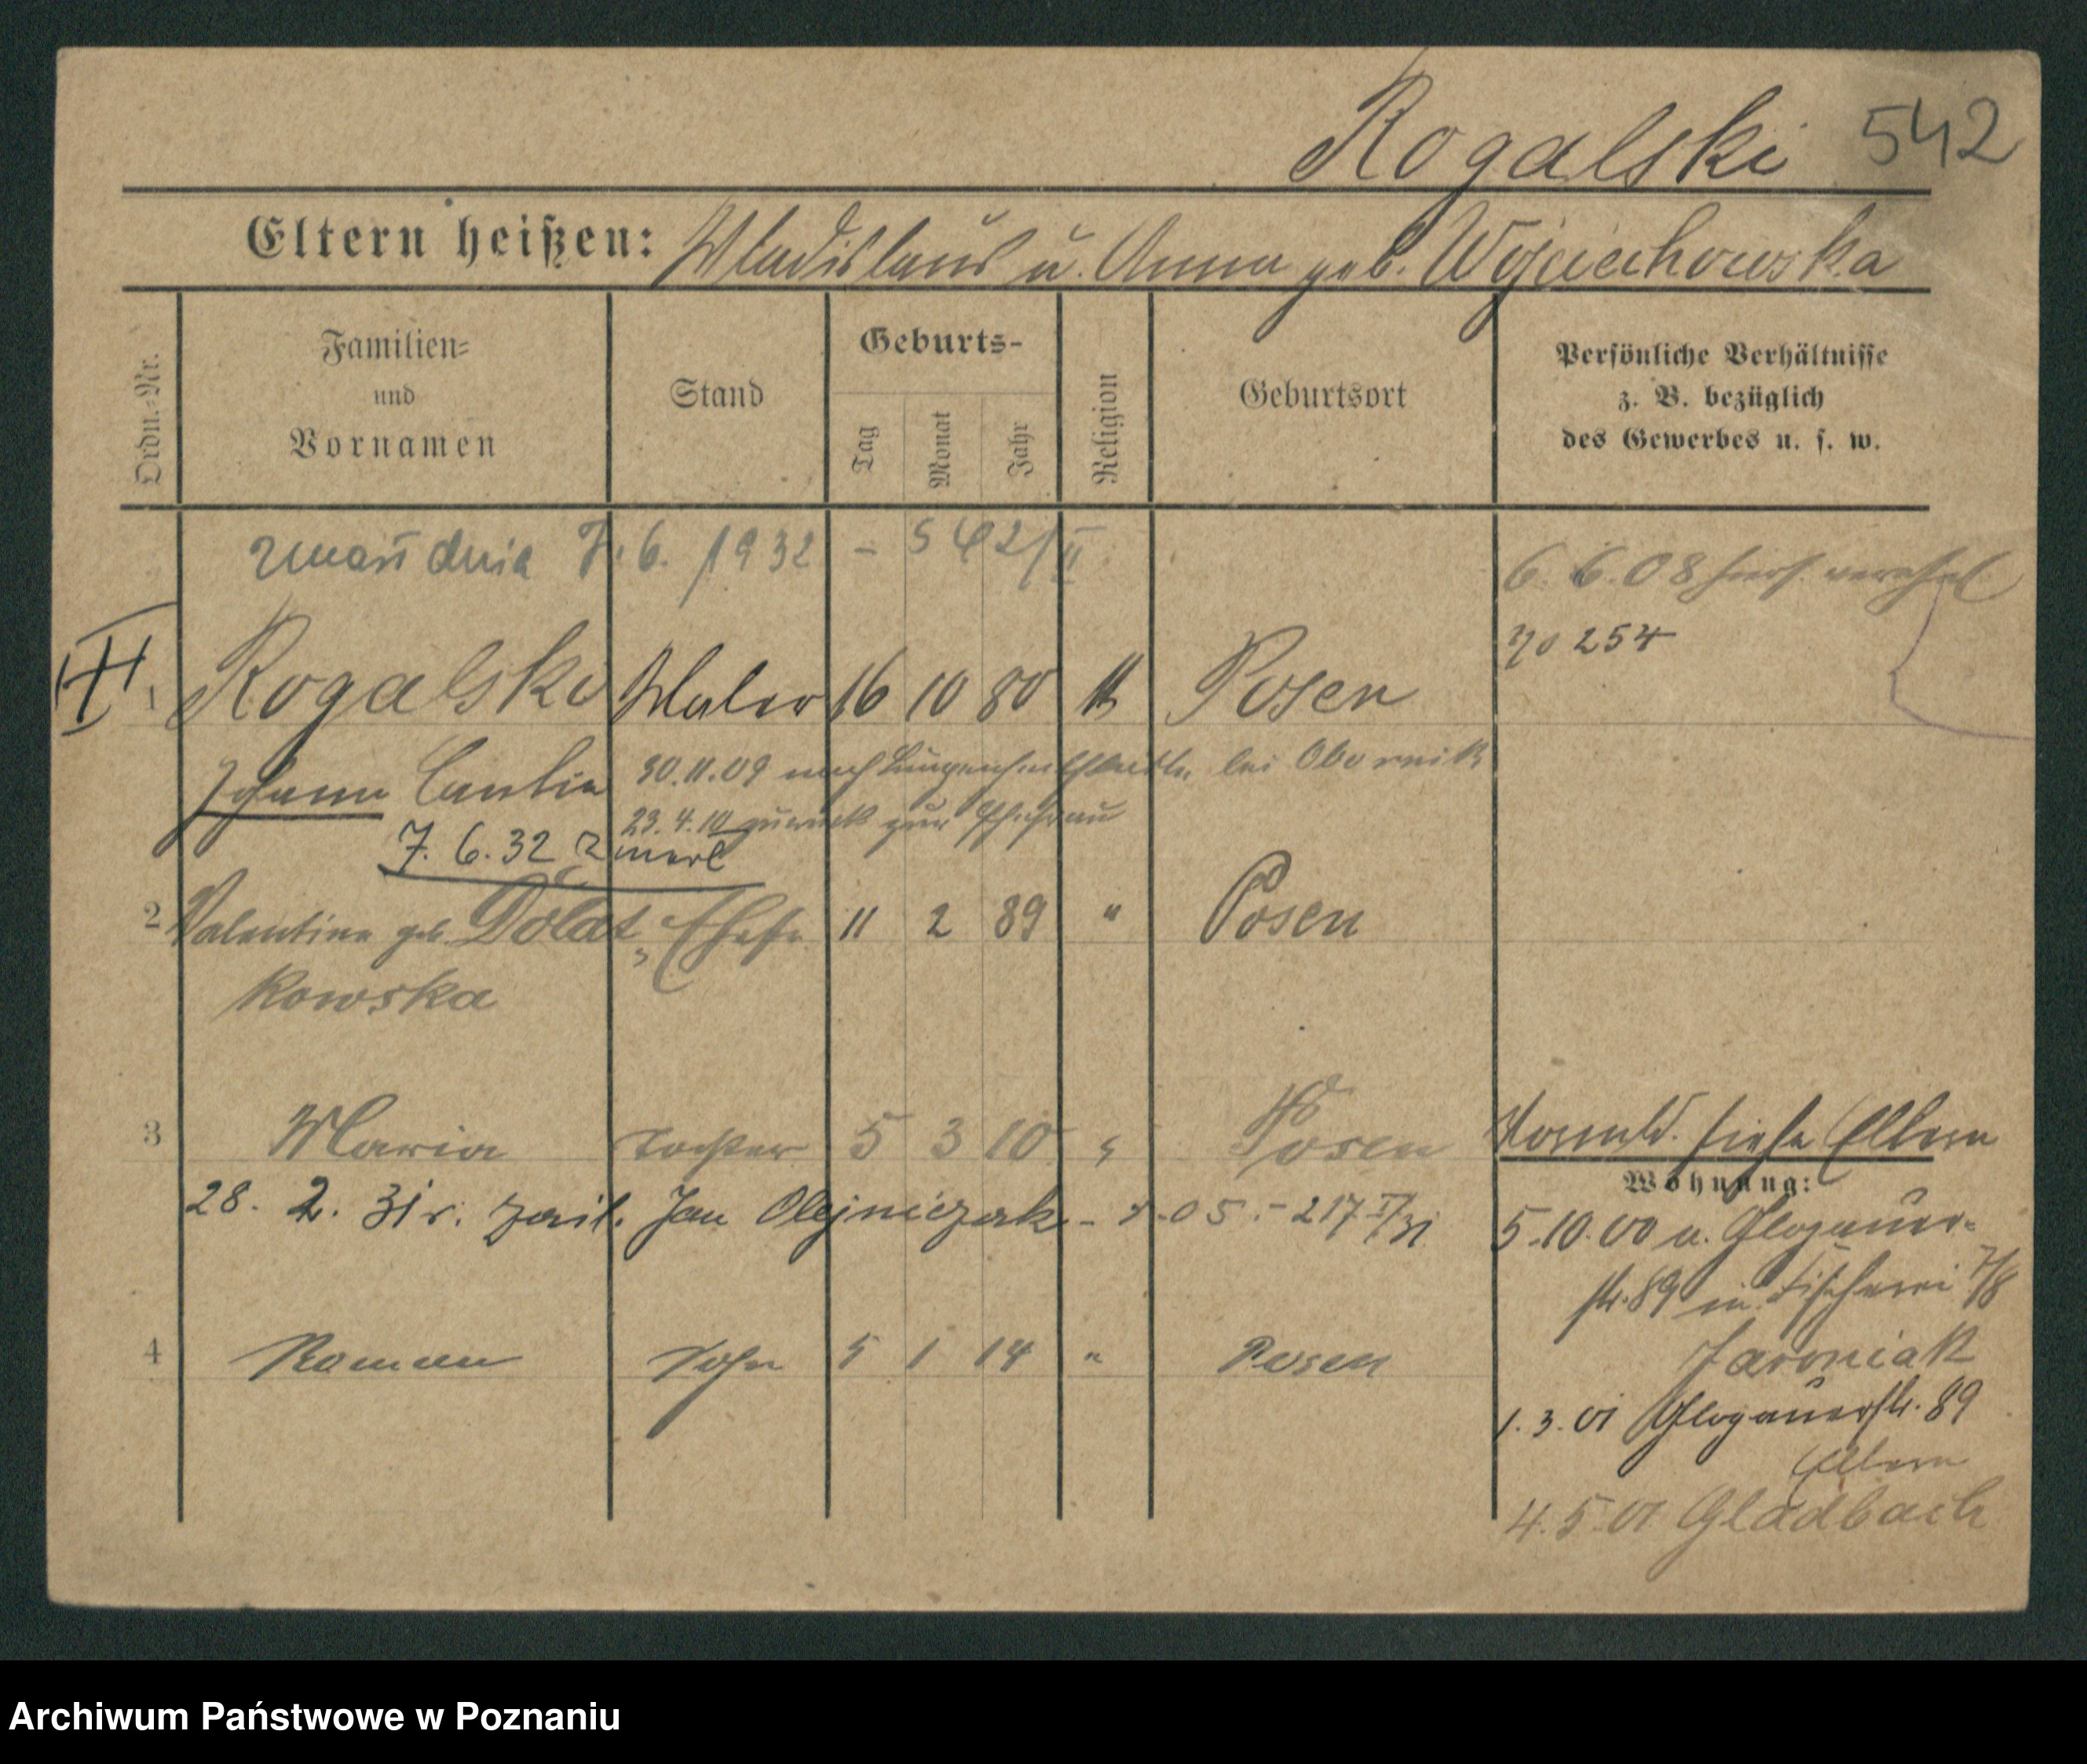 Rogalski 542
Eltern heißen: Wladislaus u. Anna geb. Wojciechowska
Ordn.-Nr.
Familien-
und
Vornamen
Stand
Geburts-
Tag
Monat
Jahr
Religion
Geburtsort
Persönliche Verhältnisse
z. B. bezüglich
des Gewerbes u. s. w.
zmarł dnia 7.6. 1932 - 542/II
6.6.08 hier verehel
No 254
III
1 Rogalski Maler 16 10 80 k Posen
Johann Cantin 30.11.09 nach bei Obornik
23.4.10 zurück zur Ehefrau
7.6.32 zmarł
2 Valentine geb. Dolat- Ehefr. 11 2 89 " Posen
kowska
3 Maria Tochter 5 3 10 " Posen
siehe Eltern
Wohnung:
28. 2. 31 r. Jan Olejniczak - 05. - 217 II/31
5.10.00 u. Glogauer-
str. 89 in Fischerei 7/8
4 Roman Sohn 5 1 14 " Posen
Jaroniak
1.3.01 Glogauerstr. 89
Eltern
4.5.01 Gladbach
Archiwum Państwowe w Poznaniu